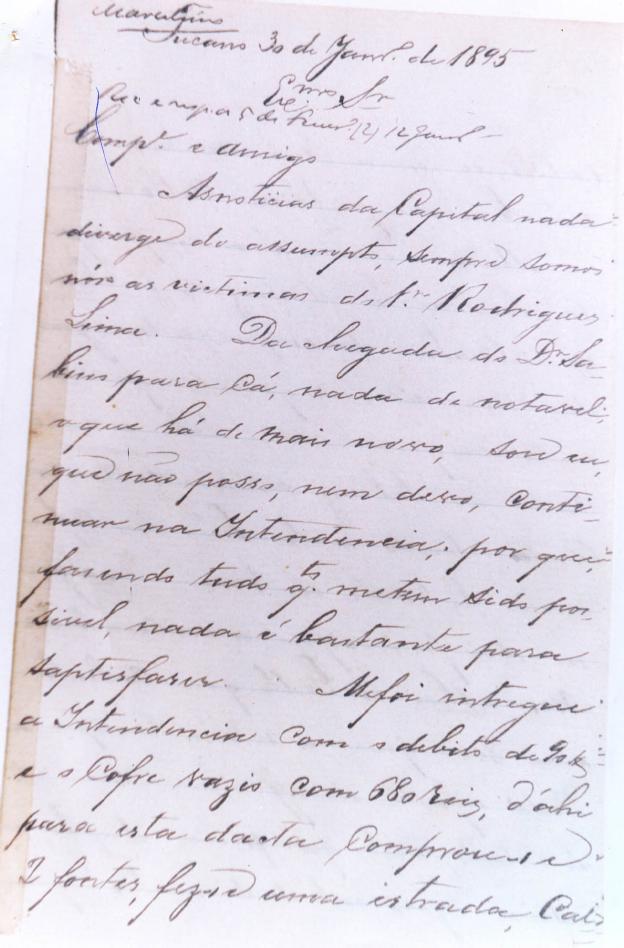 Tucano 30 de Janr.º de 1895
Ex.mo Sr.
Comp.e e amigo
As noticias da Capital nada
diverge do assumpto, sempre somos
nós as victimas do Rodrigues
Lima. Da chegada do Dr. Sa-
bino para cá, nada de notavel;
o que há de mais novo, sou eu,
que não posso, nem devo, conti-
nuar na Intendencia, por que,
fazendo tudo q.to metem sido pos-
sivel, nada é bastante para
saptisfaser. Mefoi intregue
a Intendencia com o debito de
e o Cofre vazio com 680 reis, d'ahi
para esta dacta Comprou-se
2 fontes, fez-se uma estrada,